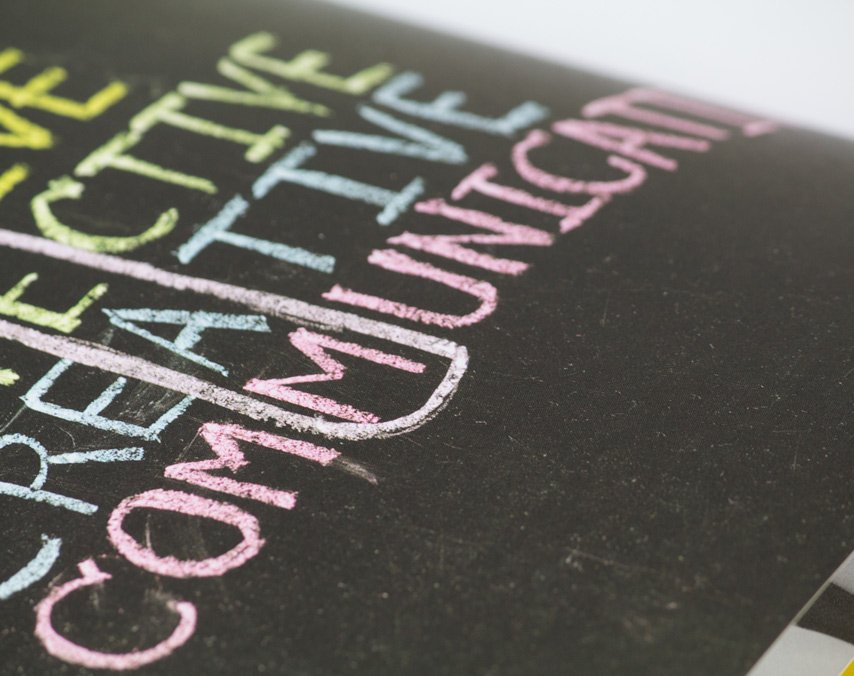 VE
ECTIVE
CREATIVE
COMMUNICATI